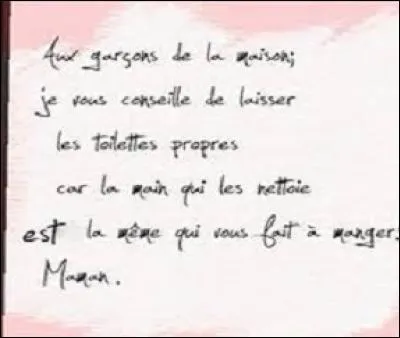 Aux garçons de la maison;
je vous conseille de laisser
les toilettes propres
car la main qui les nettoie
est la même qui vous fait à manger.
Maman.